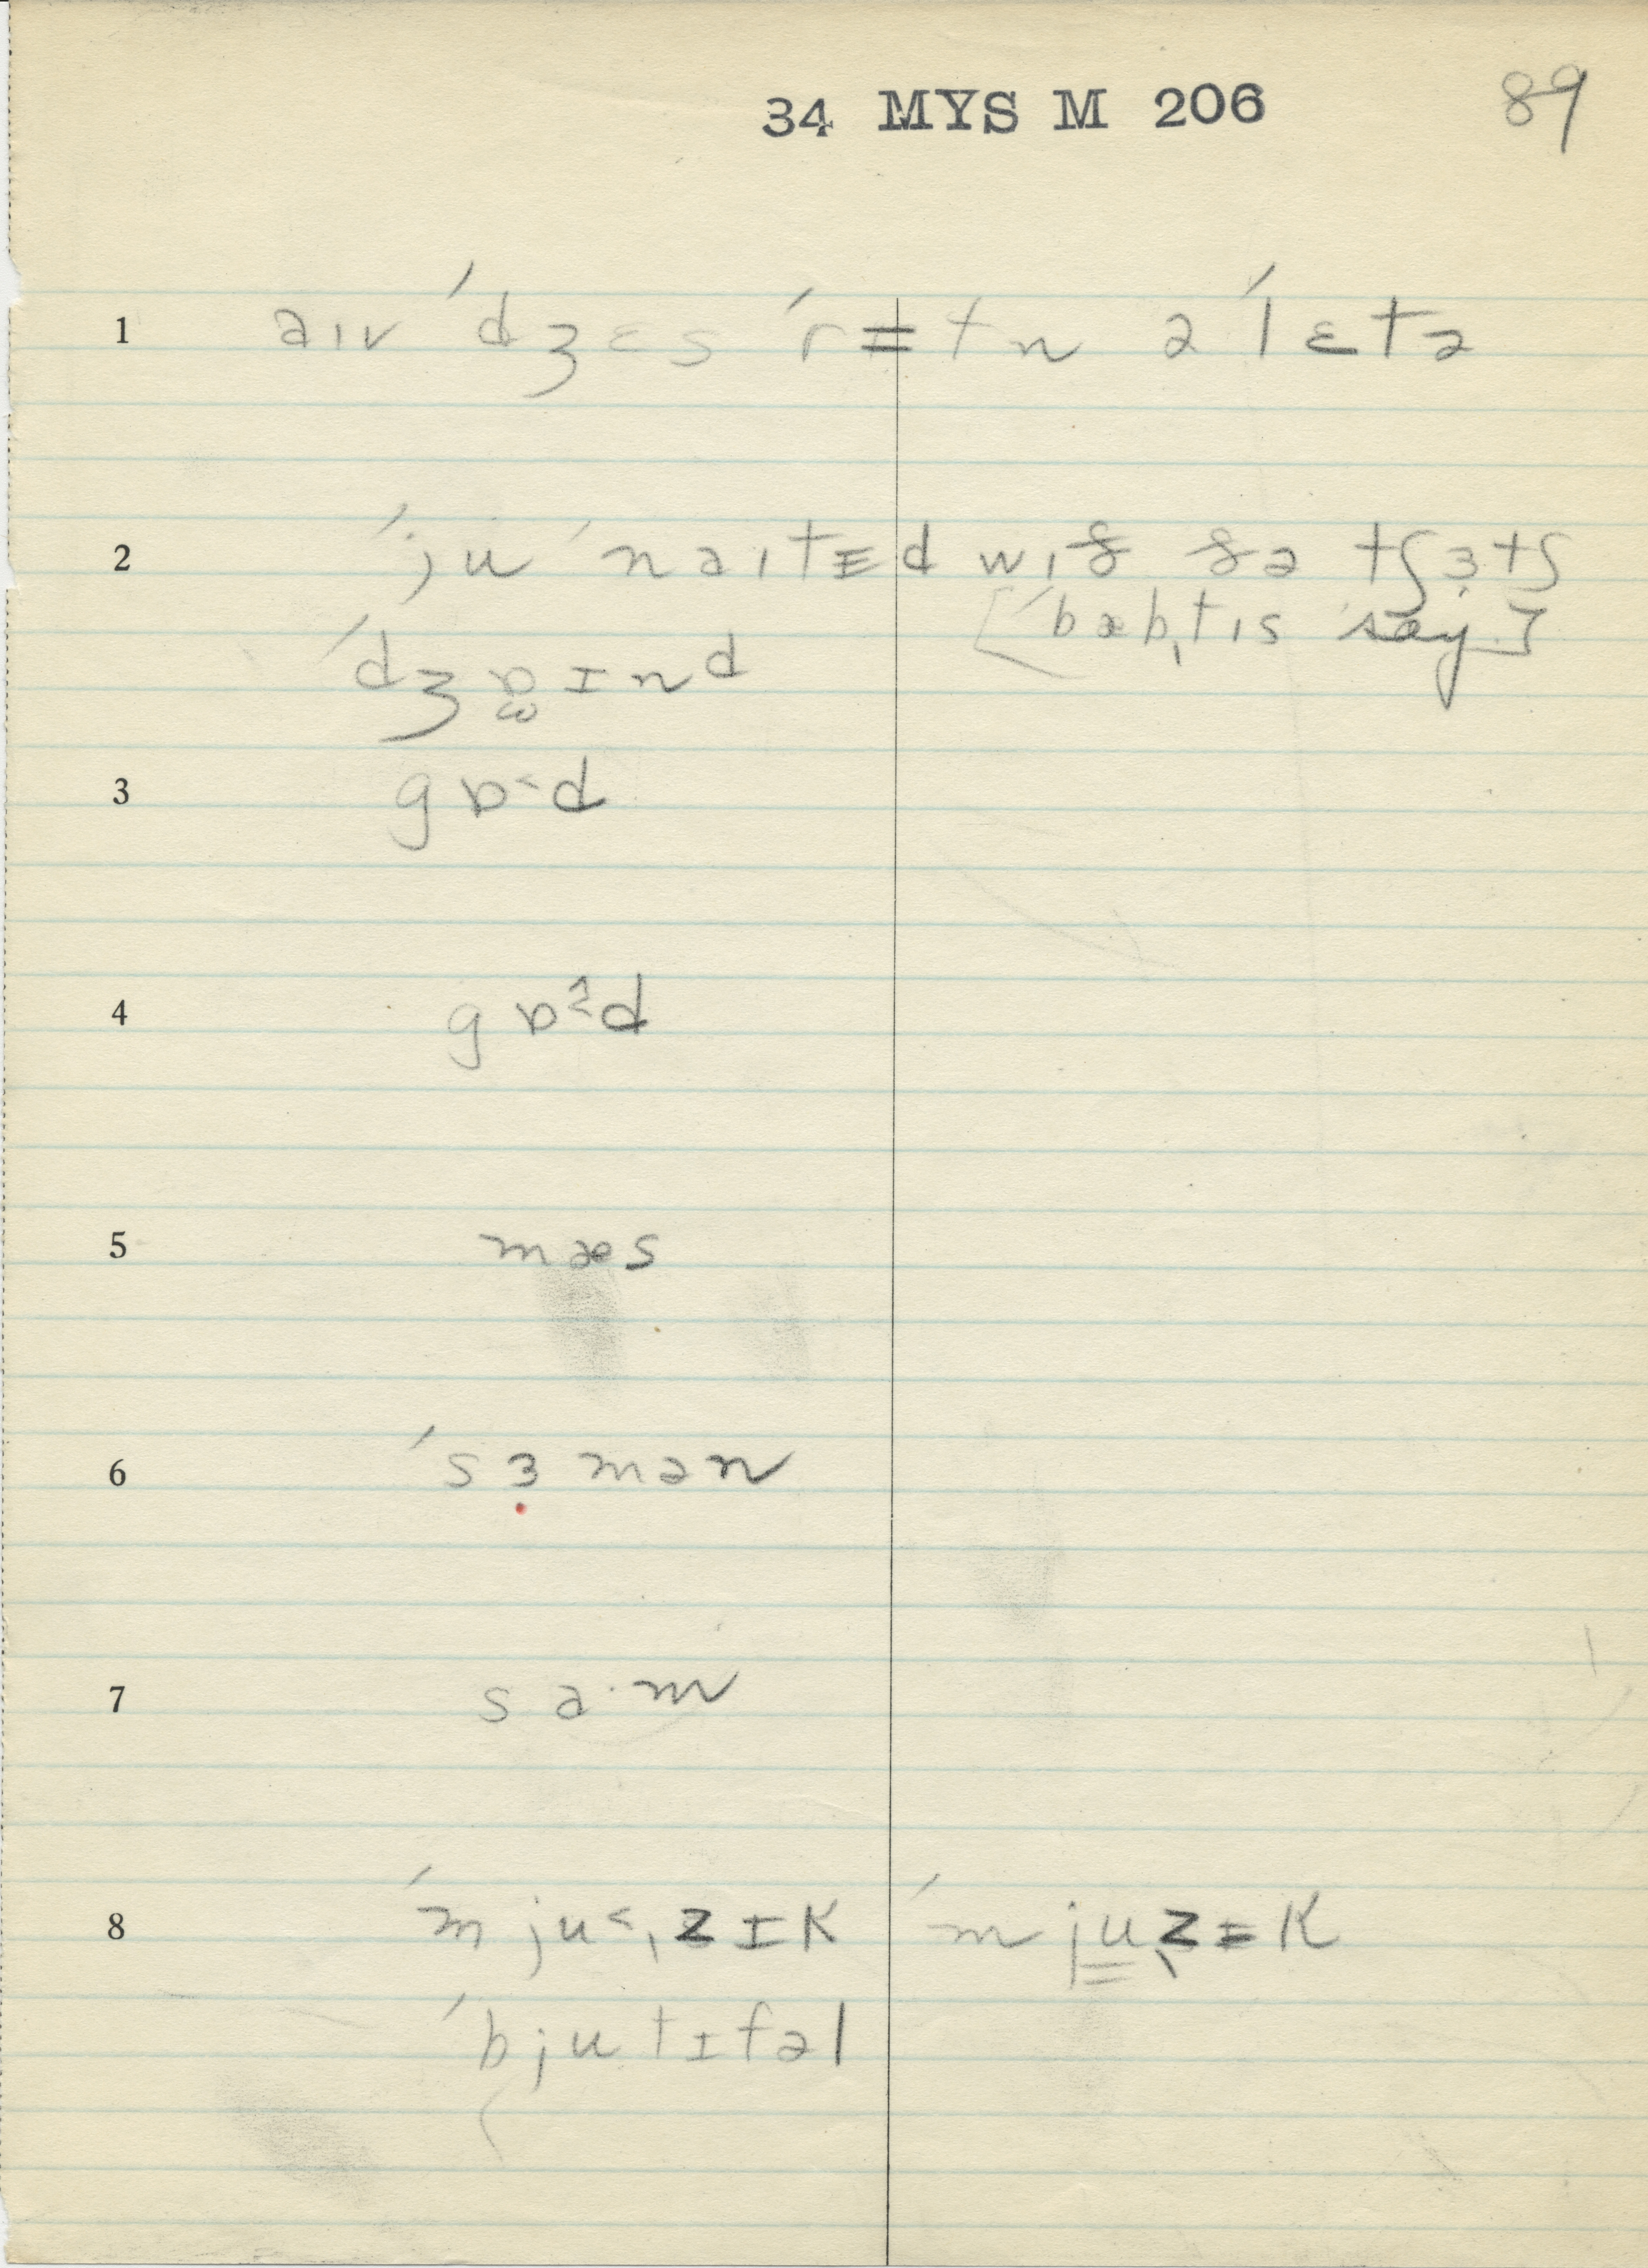 34 MYS M 206 89
1 aɪv ˈdʒɛs ˈrɨtn ə ˈlɛtə
2 ˈju ˈnaɪtɨd wɪð ðə tʃɜtʃ
[ˈbæbˌtɪs say]
ˈdʒɒɪnd
3 gɒ˂d
4 gɒ^˂d
5 mæs
6 ˈsɜmən
7 sa·m
8 ˈmju˂ˌzɪk ˈmjuˌzɨk
ˈbjutɪfəl